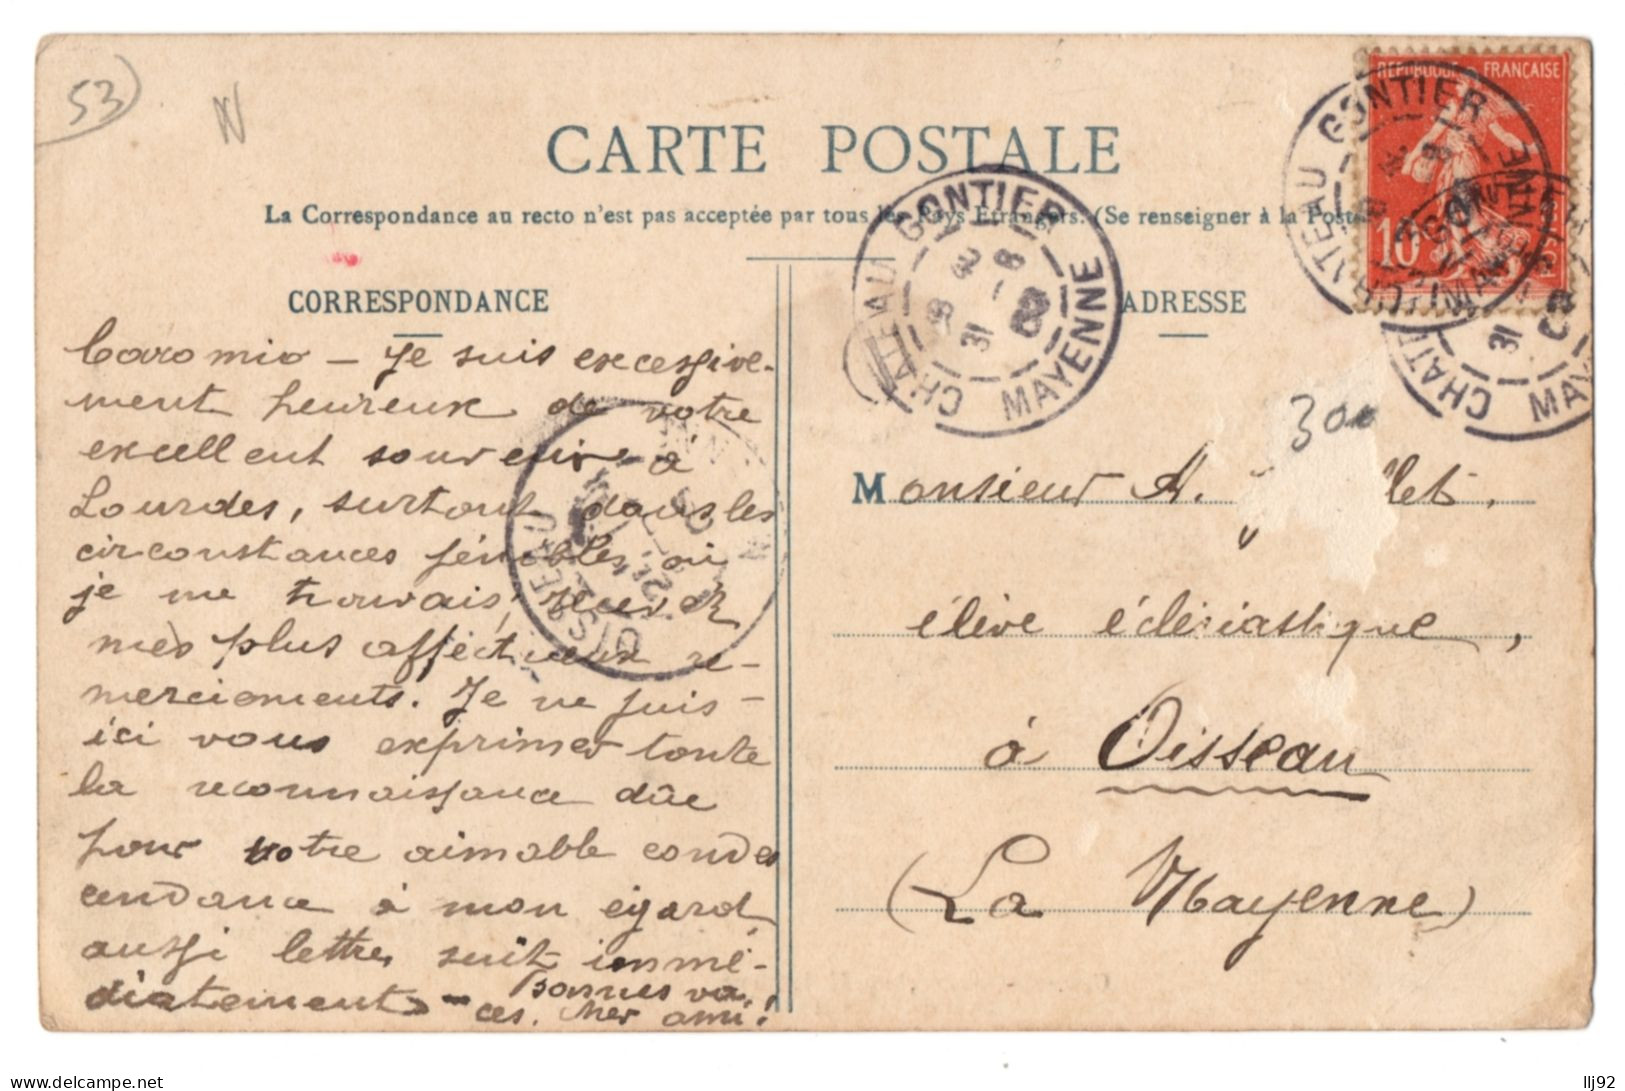 53
N
CARTE POSTALE
La Correspondance au recto n'est pas acceptée par tous les Pays Étrangers. (Se renseigner à la Poste
REPUBLIQUE FRANÇAISE
10
CHATEAU GONTIER
MAYENNE
31 - 8
08
CHATEAU GONTIER
MAYENNE
CORRESPONDANCE
ADRESSE
Caro mio – Je suis excessive-
ment heureux de votre
excellent souvenir à
Lourdes, surtout dans les
circonstances pénibles où
je me trouvais, recevez
mes plus affectueux re-
merciements. Je ne puis –
ici vous exprimer toute
la reconnaissance dûe
pour votre aimable condes
cendance à mon égard,
aussi lettre suit immé-
diatement – Bonnes va.
ces. Cher ami!
OISSEAU
300
Monsieur A. llet,
élève éclésiastique,
à Oisseau
(La Mayenne)
llj92